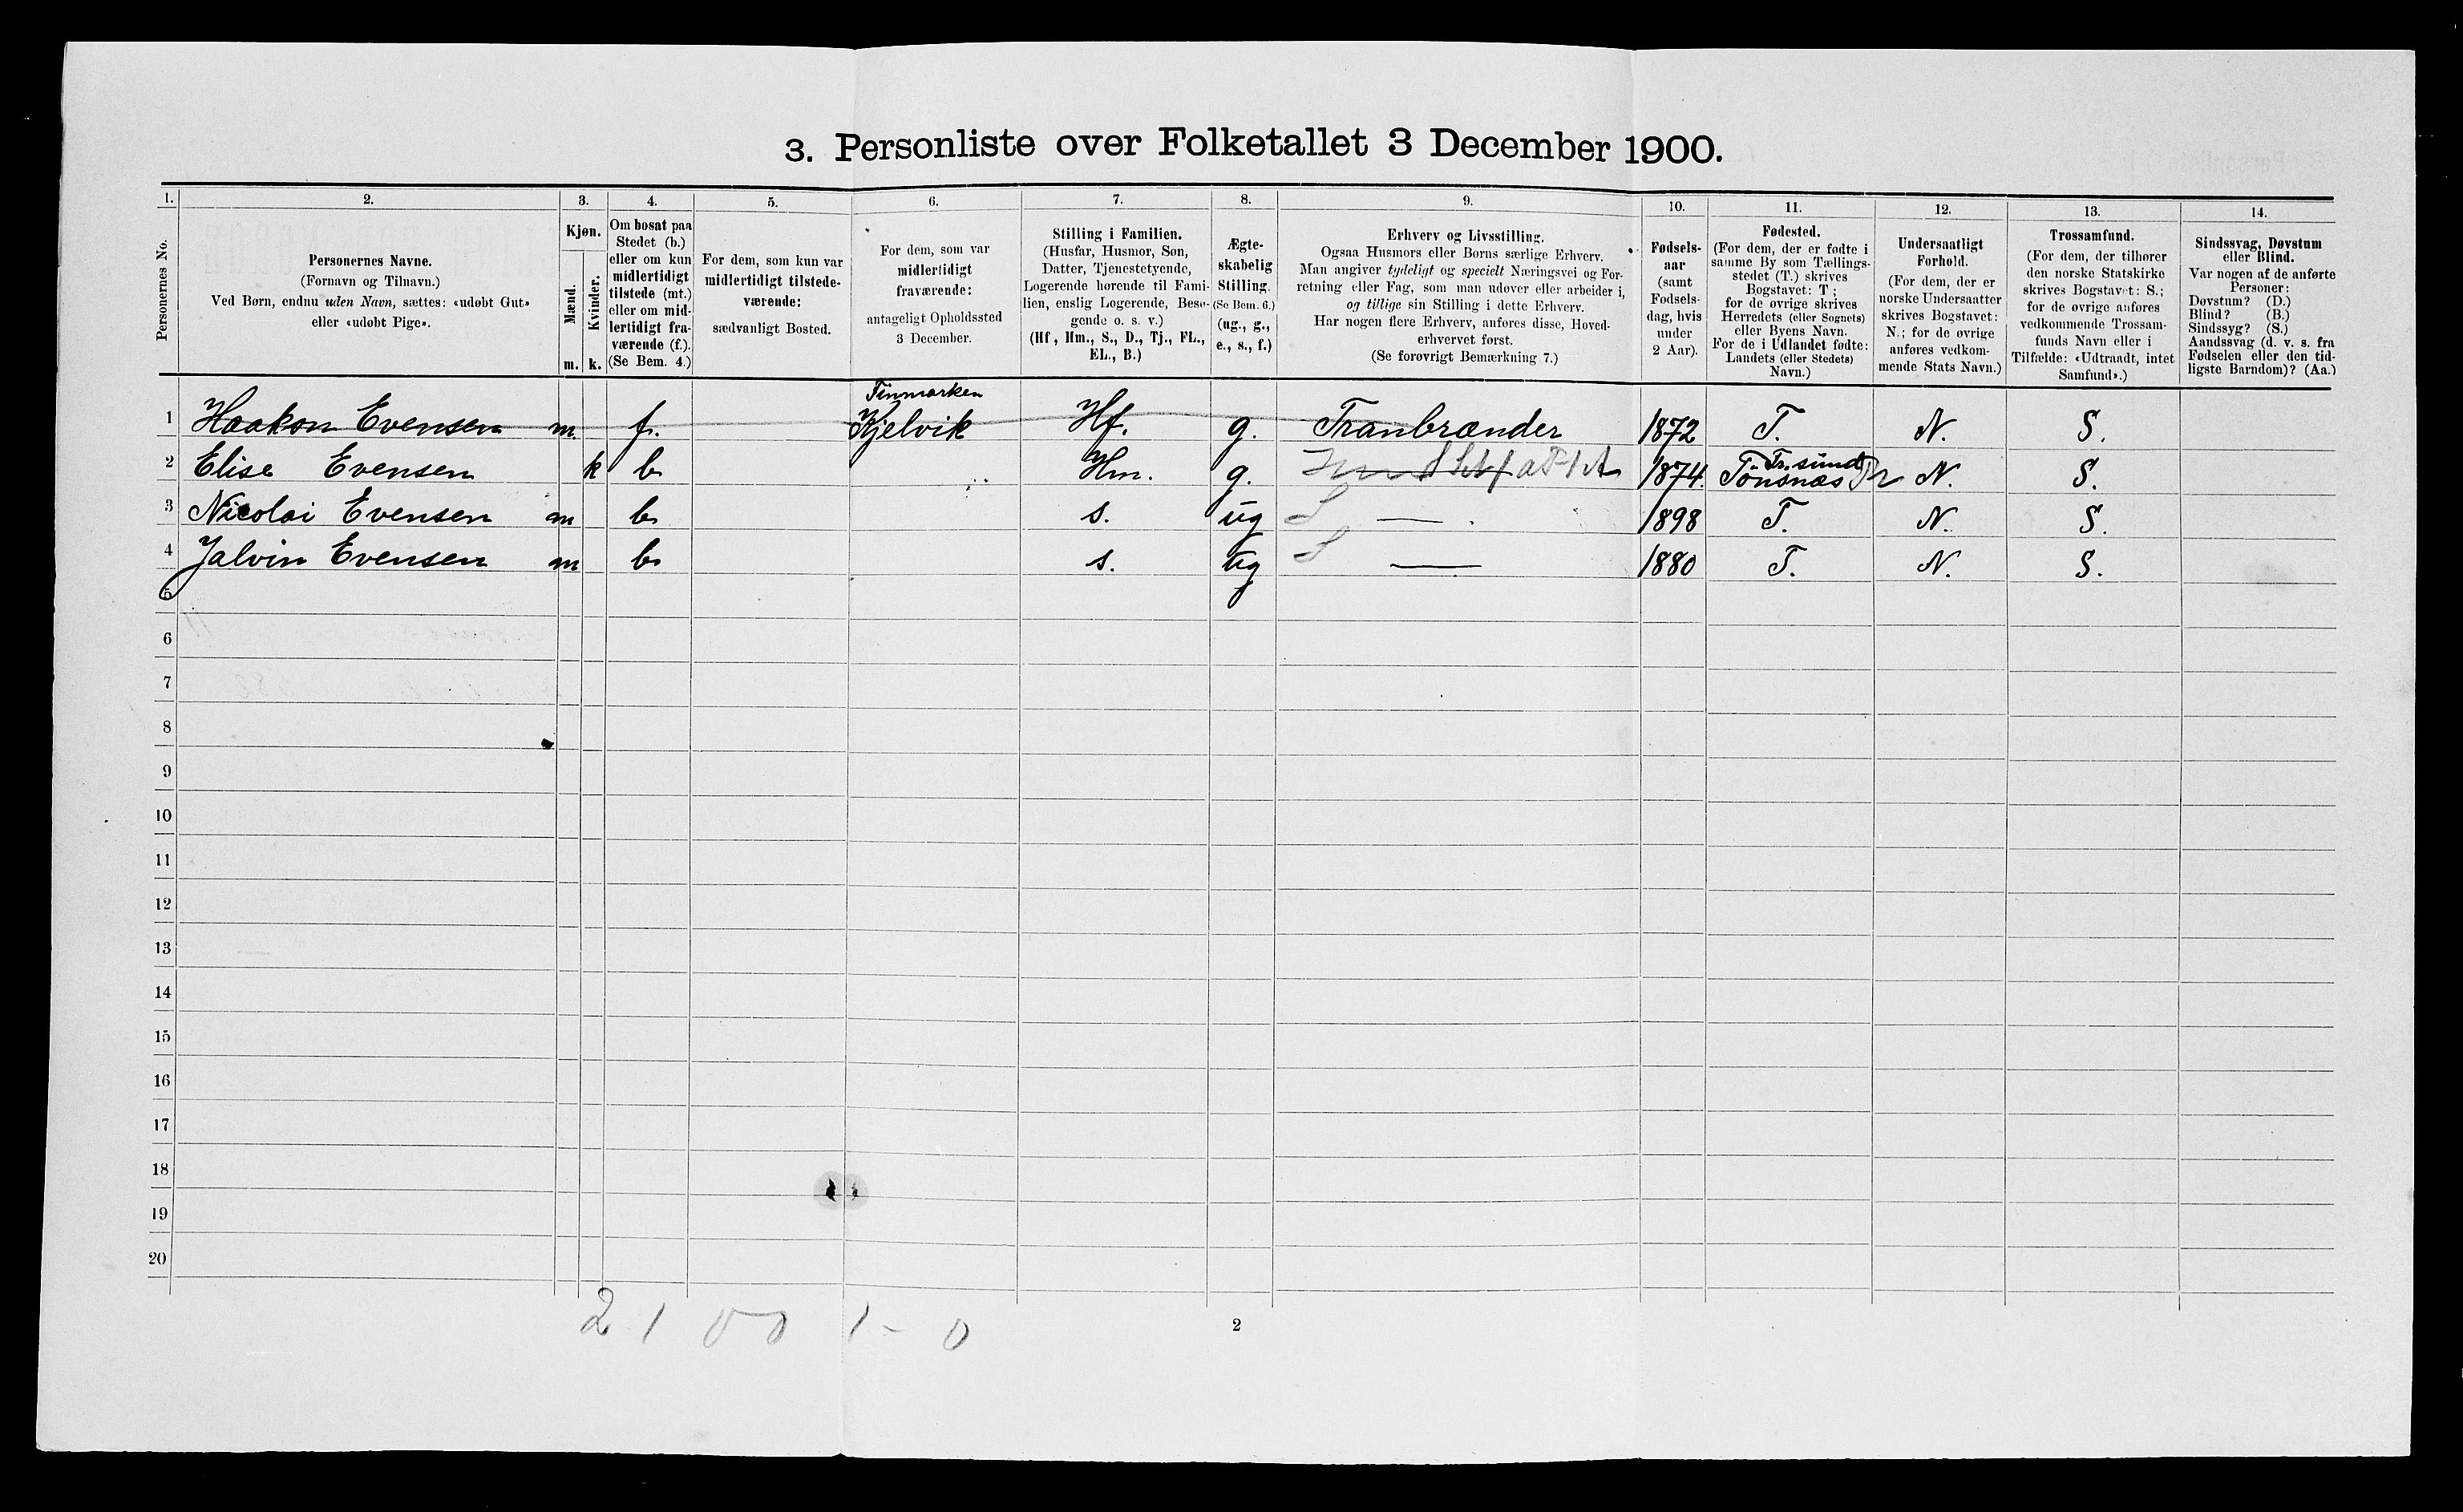 3. Personliste over Folketallet 3 December 1900.
1. 2. 3. 4. 5. 6. 7. 8. 9. 10. 11. 12. 13. 14.
Personernes No.
Personernes Navne.
(Fornavn og Tilnavn.)
Ved Børn, endnu uden Navn, sættes: «udøbt Gut»
eller «udøbt Pige».
Kjøn.
Mænd.
Kvinder.
m. k.
Om bosat paa
Stedet (b.)
eller om kun
midlertidigt
tilstede (mt.)
eller om mid-
lertidigt fra-
værende (f.).
(Se Bem. 4.)
For dem, som kun var
midlertidigt tilstede-
værende:
sædvanligt Bosted.
For dem, som var
midlertidigt
fraværende:
antageligt Opholdssted
3 December.
Stilling i Familien.
(Husfar, Husmor, Søn,
Datter, Tjenestetyende,
Logerende hørende til Fami-
lien, enslig Logerende, Besø-
gende o. s. v.)
(Hf., Hm., S., D., Tj., FL.,
EL., B.)
Ægte-
skabelig
Stilling.
(Se Bem. 6.)
(ug., g.,
e., s., f.)
Erhverv og Livsstilling.
Ogsaa Husmors eller Børns særlige Erhverv.
Man angiver tydeligt og specielt Næringsvei og For-
retning eller Fag, som man udøver eller arbeider i,
og tillige sin Stilling i dette Erhverv.
Har nogen flere Erhverv, anføres disse, Hoved-
erhvervet først.
(Se forøvrigt Bemærkning 7.)
Fødsels-
aar
(samt
Fødsels-
dag, hvis
under
2 Aar).
Fødested.
(For dem, der er fødte i
samme By som Tællings-
stedet (T.) skrives
Bogstavet: T;
for de øvrige skrives
Herredets (eller Sognets)
eller Byens Navn.
For de i Udlandet fødte:
Landets (eller Stedets)
Navn.)
Undersaatligt
Forhold.
(For dem, der er
norske Undersaatter
skrives Bogstavet:
N.; for de øvrige
anføres vedkom-
mende Stats Navn.)
Trossamfund.
(For dem, der tilhører
den norske Statskirke
skrives Bogstavet: S.;
for de øvrige anføres
vedkommende Trossam-
funds Navn eller i
Tilfælde: «Udtraadt, intet
Samfund».)
Sindssvag, Døvstum
eller Blind.
Var nogen af de anførte
Personer:
Døvstum? (D.)
Blind? (B.)
Sindssyg? (S.)
Aandssvag (d. v. s. fra
Fødselen eller den tid-
ligste Barndom)? (Aa.)
Finmarken
1 Haakon Evensen m. f. Kjelvik Hf. g. Tranbrænder 1872 T. N. S.
Tr.sund
2 Elise Evensen k b Hm. g. 1874. Tönsnæs Tr N. S.
3 Nicolai Evensen m b s. ug S — 1898 T. N. S.
4 Jalvin Evensen m b s. ug S — 1880 T. N. S.
5
6
7
8
9
10
11
12
13
14
15
16
17
18
19
20
2 1 0 0 1 - 0
2